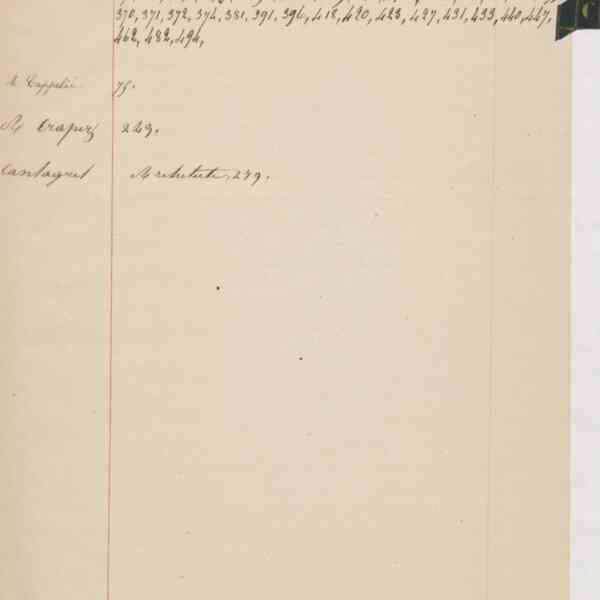 370, 371, 372, 374, 381, 391, 394, 418, 420, 423, 427, 431, 433, 440, 447,
462, 482, 494,
75.
M Crapez 223.
Cantagrel Architecte, 279.
C